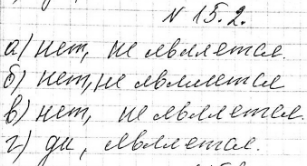 № 15.2.
а) нет, не является.
б) нет, не является
в) нет, не является.
г) да, является.